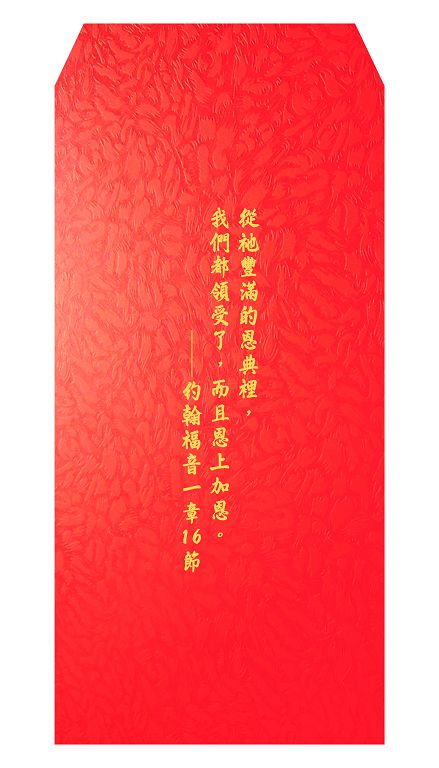 從祂豐滿的恩典裡，
我們都領受了，而且恩上加恩。
——約翰福音一章16節